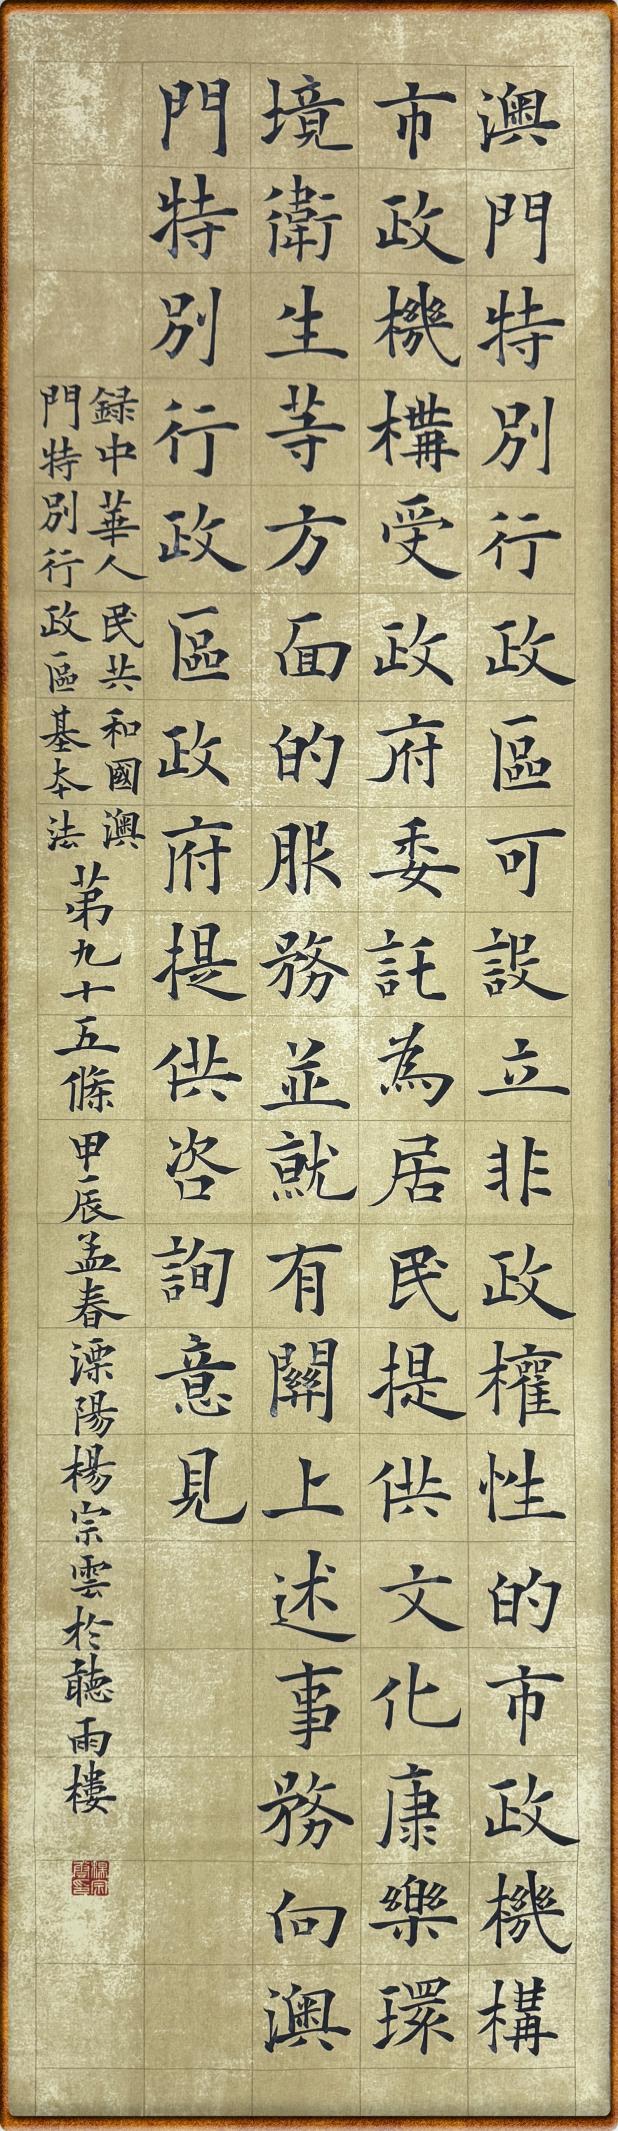 澳門特別行政區可設立非政權性的市政機構
市政機構受政府委託為居民提供文化康樂環
境衛生等方面的服務並就有關上述事務向澳
門特別行政區政府提供咨詢意見
録中華人民共和國澳
門特別行政區基本法
第九十五條甲辰孟春溧陽楊宗雲於聽雨樓